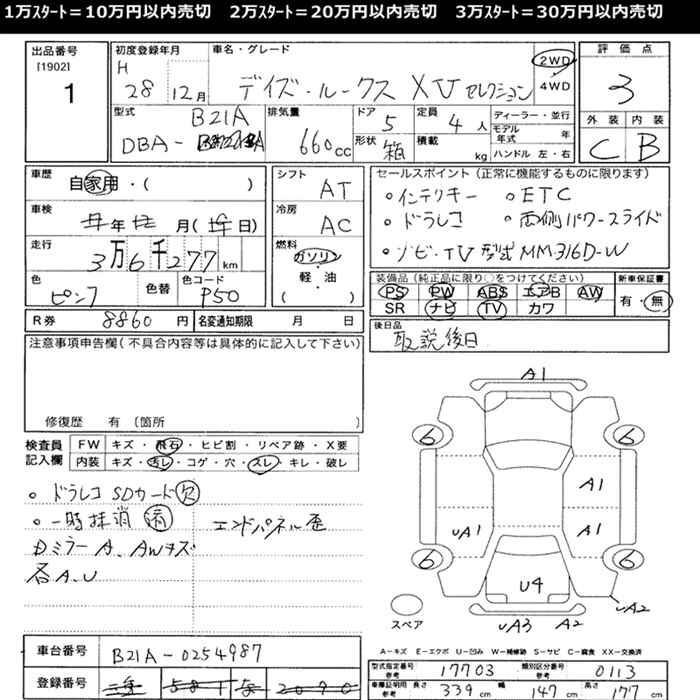 1万スタート＝10万円以内売切　2万スタート＝20万円以内売切　3万スタート＝30万円以内売切
出品番号
[1902]
1
初度登録年月
H
28 12月
車名・グレード
デイズ・ルークス XVセレクション
2WD
4WD
評価点
3
外装 内装
C B
型式
B21A
DBA-
排気量
660cc
ドア
5
形状
箱
定員
4人
積載
kg
ディーラー・並行
モデル年式 年
ハンドル 左・右
車歴
自家用・( )
車検
年 月( 日)
走行
3万6千277km
色
ピンク
色替
色コード
P50
シフト
AT
冷房
AC
燃料
ガソリン
軽・油
( )
セールスポイント(正常に機能するものに限ります)
・インテリキー ・ETC
・ドラレコ ・両側パワースライド
・ナビ・TV 型式MM316D-W
装備品(純正品に限り○をつけてください)
PS PW ABS エアB AW
SR ナビ TV カワ
新車保証書
有・無
R券 8860円
名変通知期限 月 日
後日品
取説後日
注意事項申告欄(不具合内容等は具体的に記入して下さい)
修復歴 有(箇所 )
検査員記入欄
FW キズ・飛石・ヒビ割・リペア跡・X要
内装 キズ・汚レ・コゲ・穴・スレ・キレ・破レ
○ドラレコSDカード欠
○一時抹消済 エンドパネル歪
Dミラー A、AWキズ
各A、U
A1
6 6
A1
UA1 A1
6 6
U4
UA2
UA3 A2
スペア
A－キズ E－エクボ U－凹み W－補修跡 S－サビ C－腐食 XX－交換済
車台番号
B21A-0254987
登録番号
型式指定番号
参考
17703
類別区分番号
参考
0113
車庫証明用
参考
長さ 339cm 幅 147cm 高さ 177cm